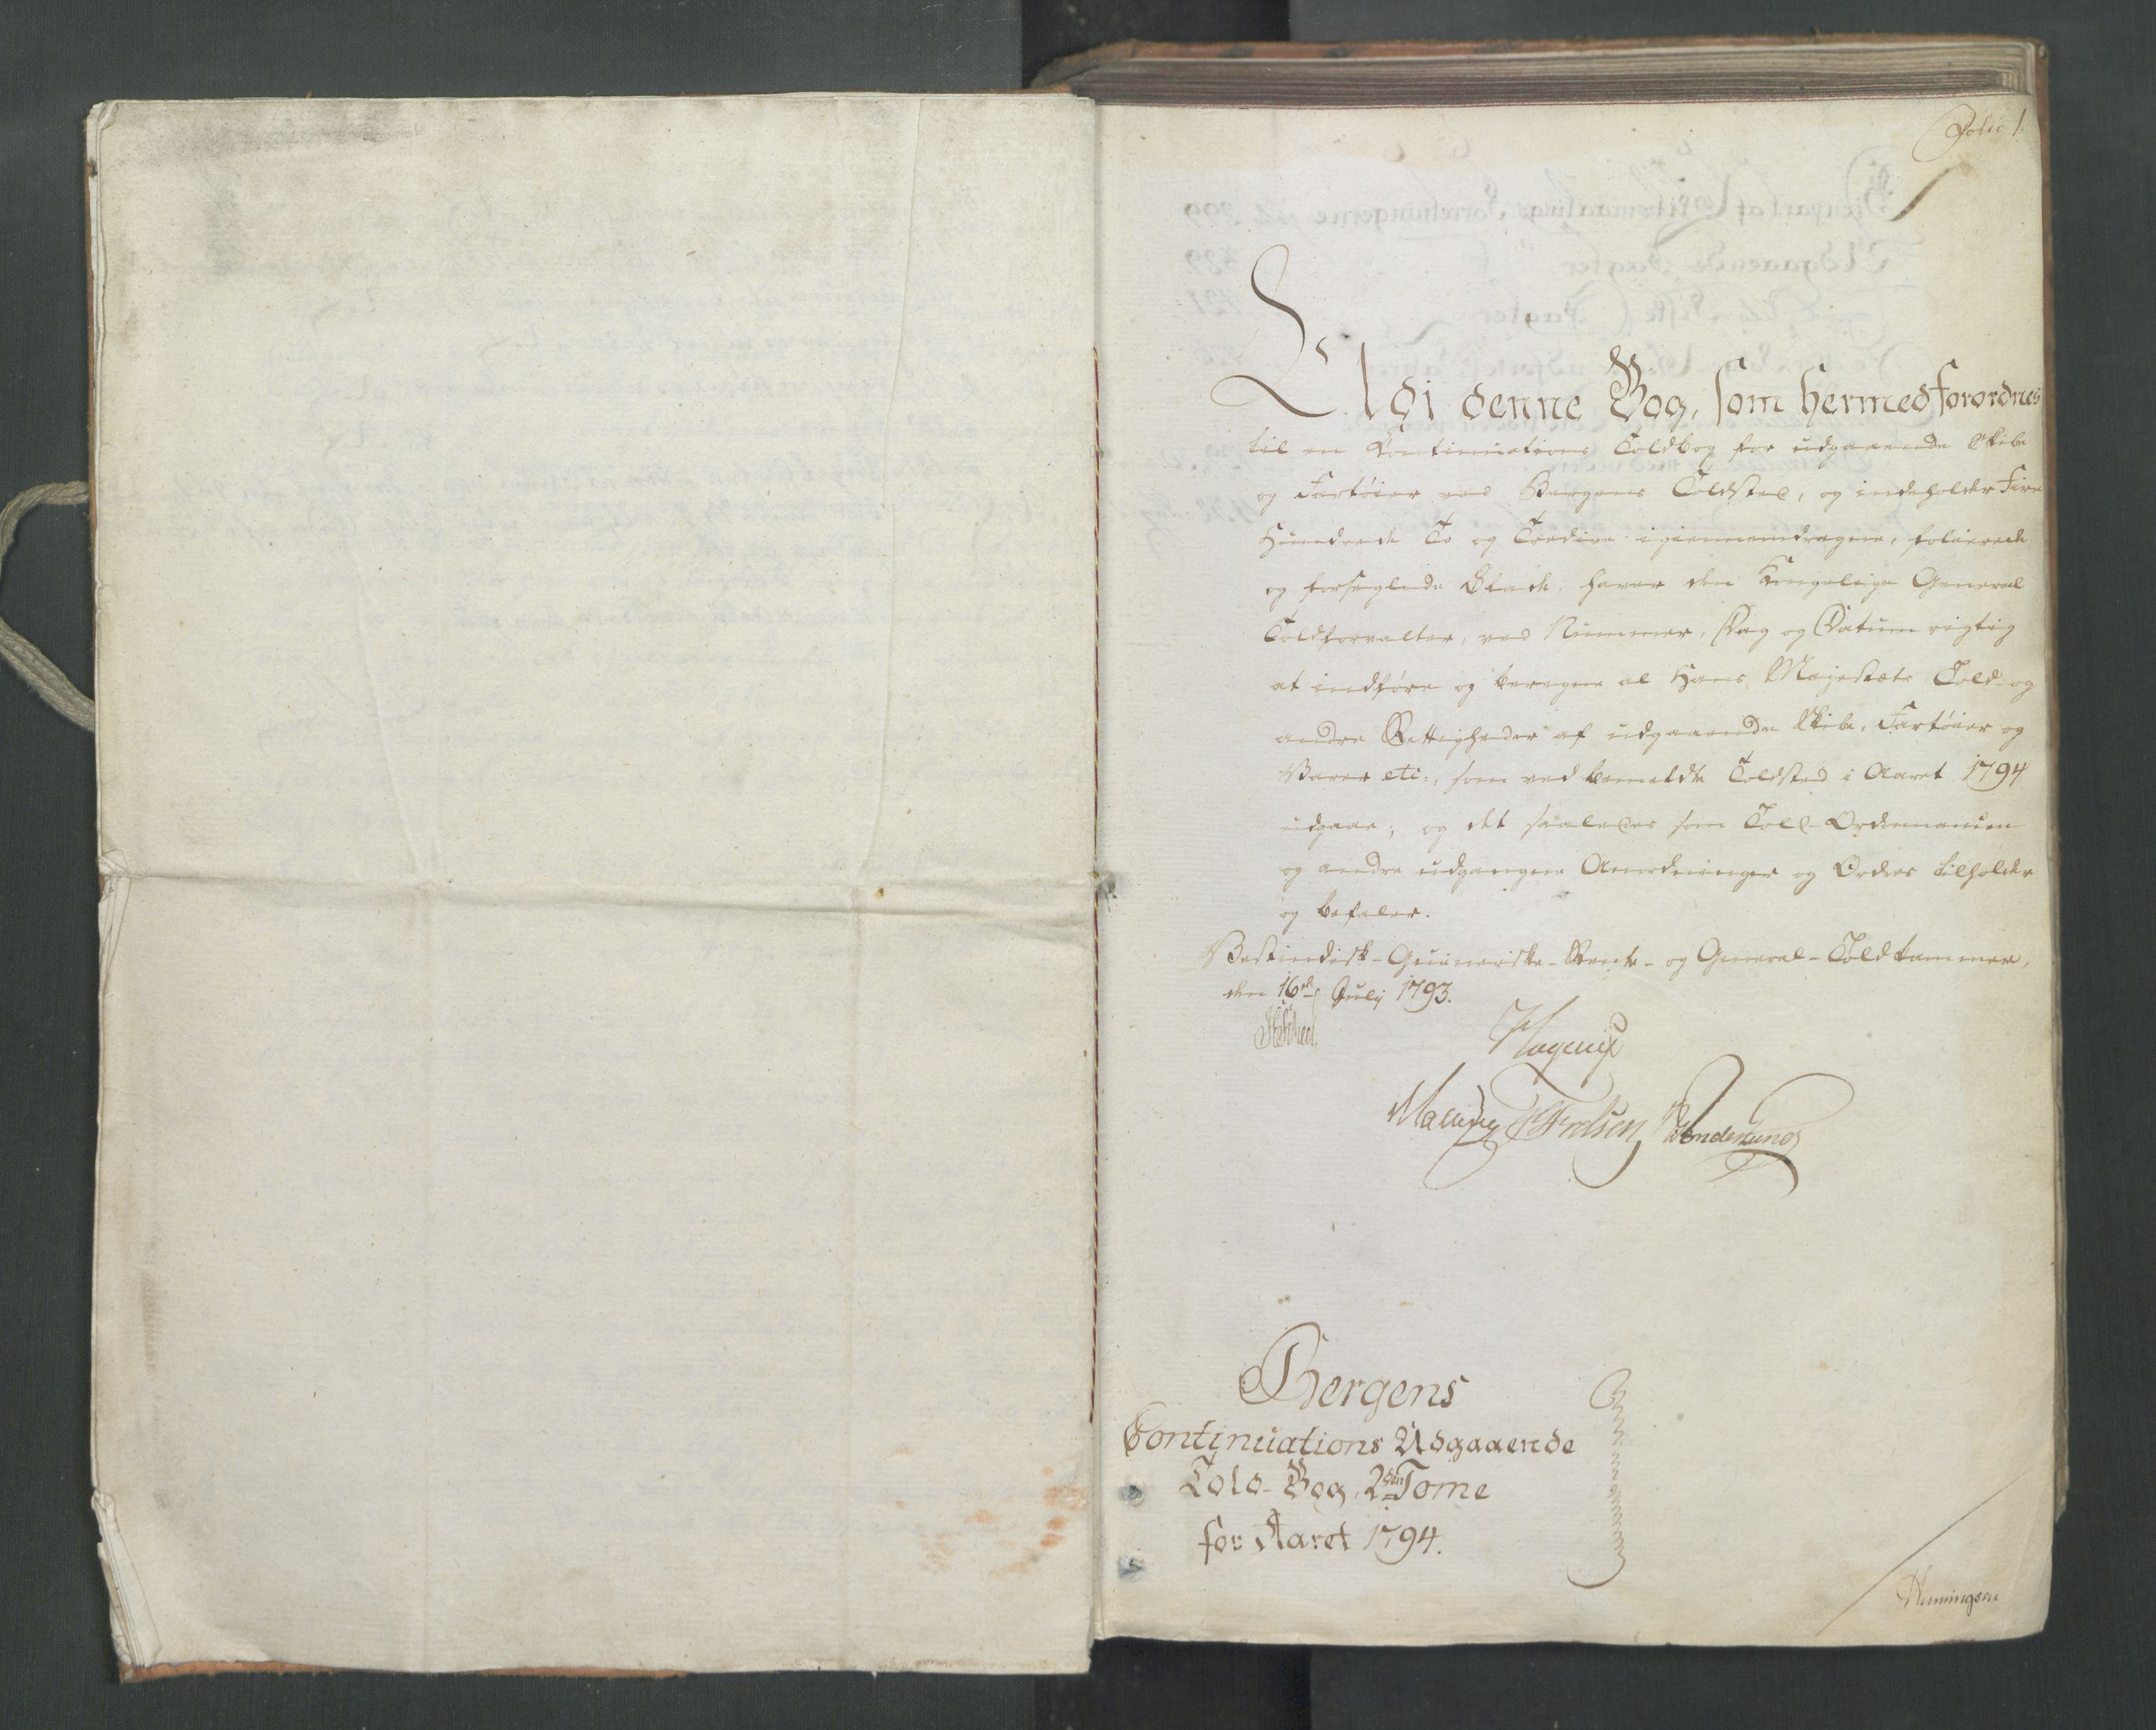 Folio 1.
Udi denne Bog, som hermed forordnes
til en Continuations Toldbog for udgaaende Skibe
og Fartöier ved Bergens Toldsted, og indeholder Fire
Hundrede To og Tredive igiennemdragne, folierede
og forseglede Blade, haver den Kongelige General
Toldforvalter, ved Nummer, Dag og Datum rigtig
at indföre og beregne al Hans Majestæts Told og
andre Rettigheder af udgaaende Skibe, Fartöier og
Varer etc:, som ved bemeldte Toldsted i Aaret 1794
udgaae; og det saaledes som Told-Ordinancen
og andre udgangne Anordninger og Ordres tilholder
og befaler.
Vestindisk-Guineiske-Rente- og General-Toldkammer,
den 16de July 1793.
Hagerup
Malling Frelsen
Bergens
Continuations Udgaaende
Told-Bog, 2den Tome
for Aaret 1794.
Henningsen